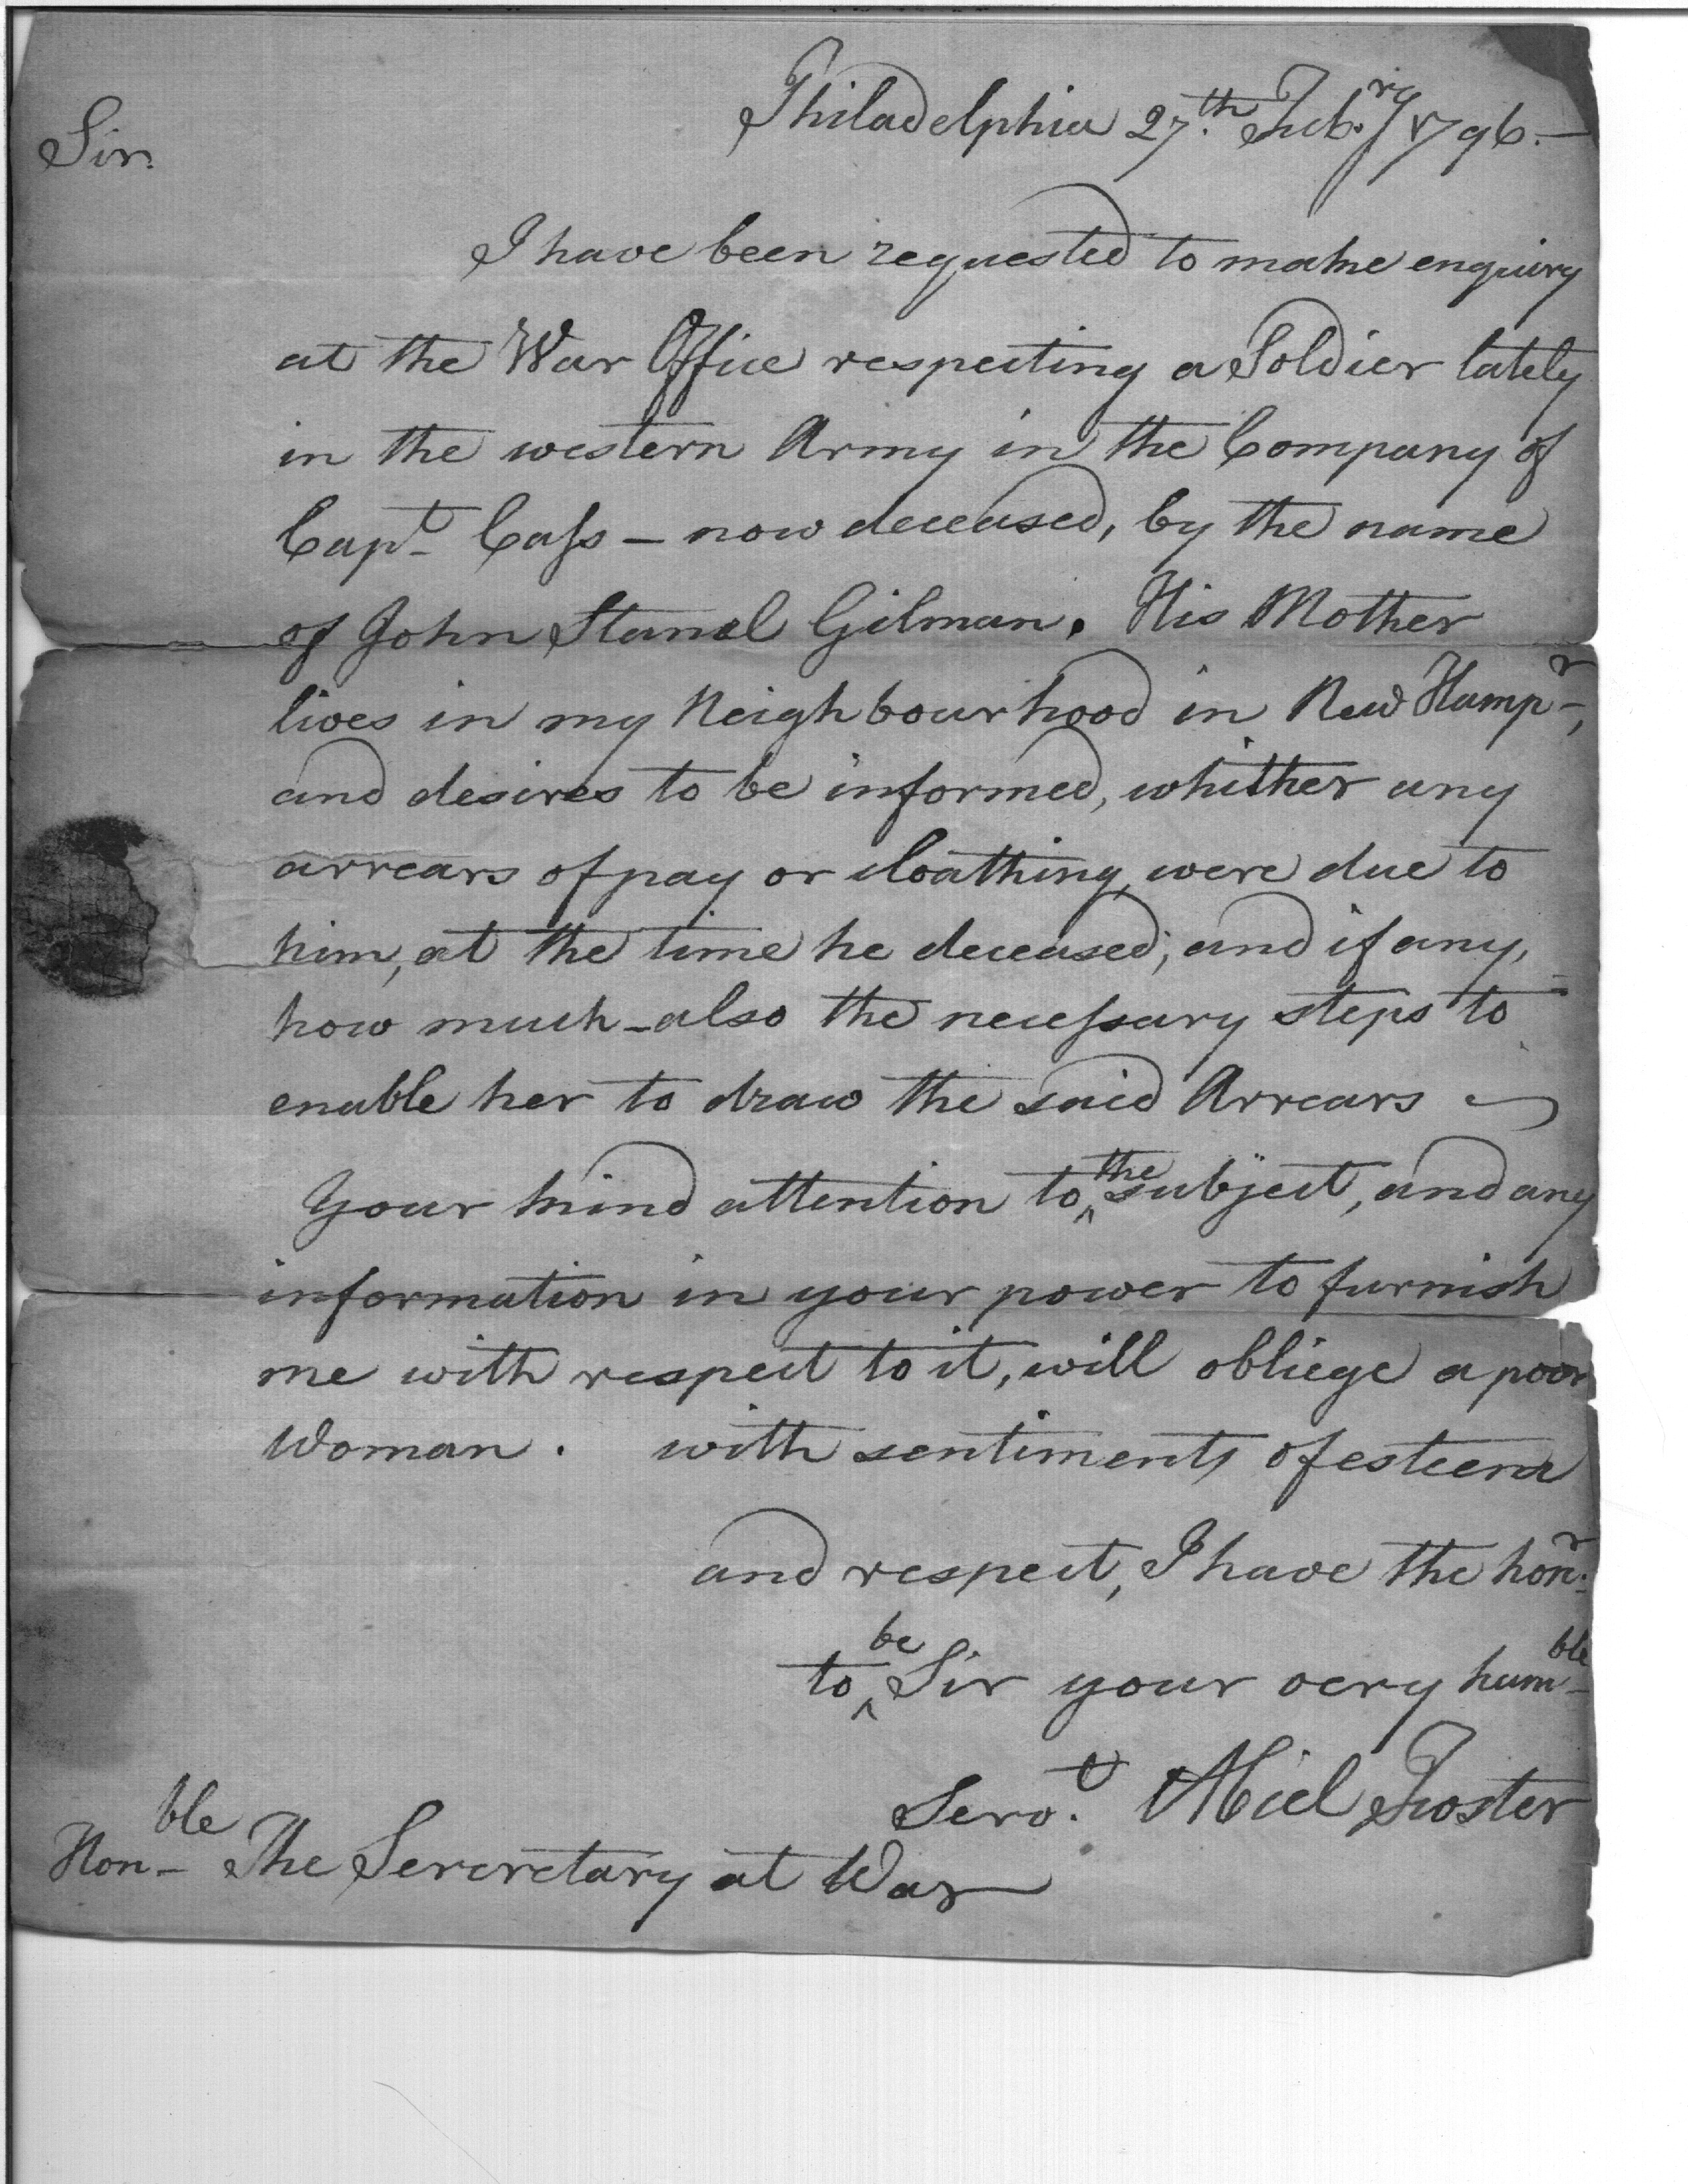 Philadelphia 27.th Feb.ry 1796.—
Sir.
I have been requested to make enquiry
at the War Office respecting a Soldier lately
in the western Army in the Company of
Capt Cass — now deceased, by the name
of John Stanel Gilman. His Mother
lives in my Neighbourhood in New Hampr,
and desires to be informed, whither any
arrears of pay or cloathing were due to
him, at the time he deceased; and if any,
how much – also the necessary steps to
enable her to draw the said Arrears
Your kind attention to ^the subject, and any
information in your power to furnish
me with respect to it, will obliege a poor
Woman. with sentiments of esteem
and respect, I have the honr.
to ^be Sir your very humble
Serv.t Abiel Foster
Honble The Sercretary at War